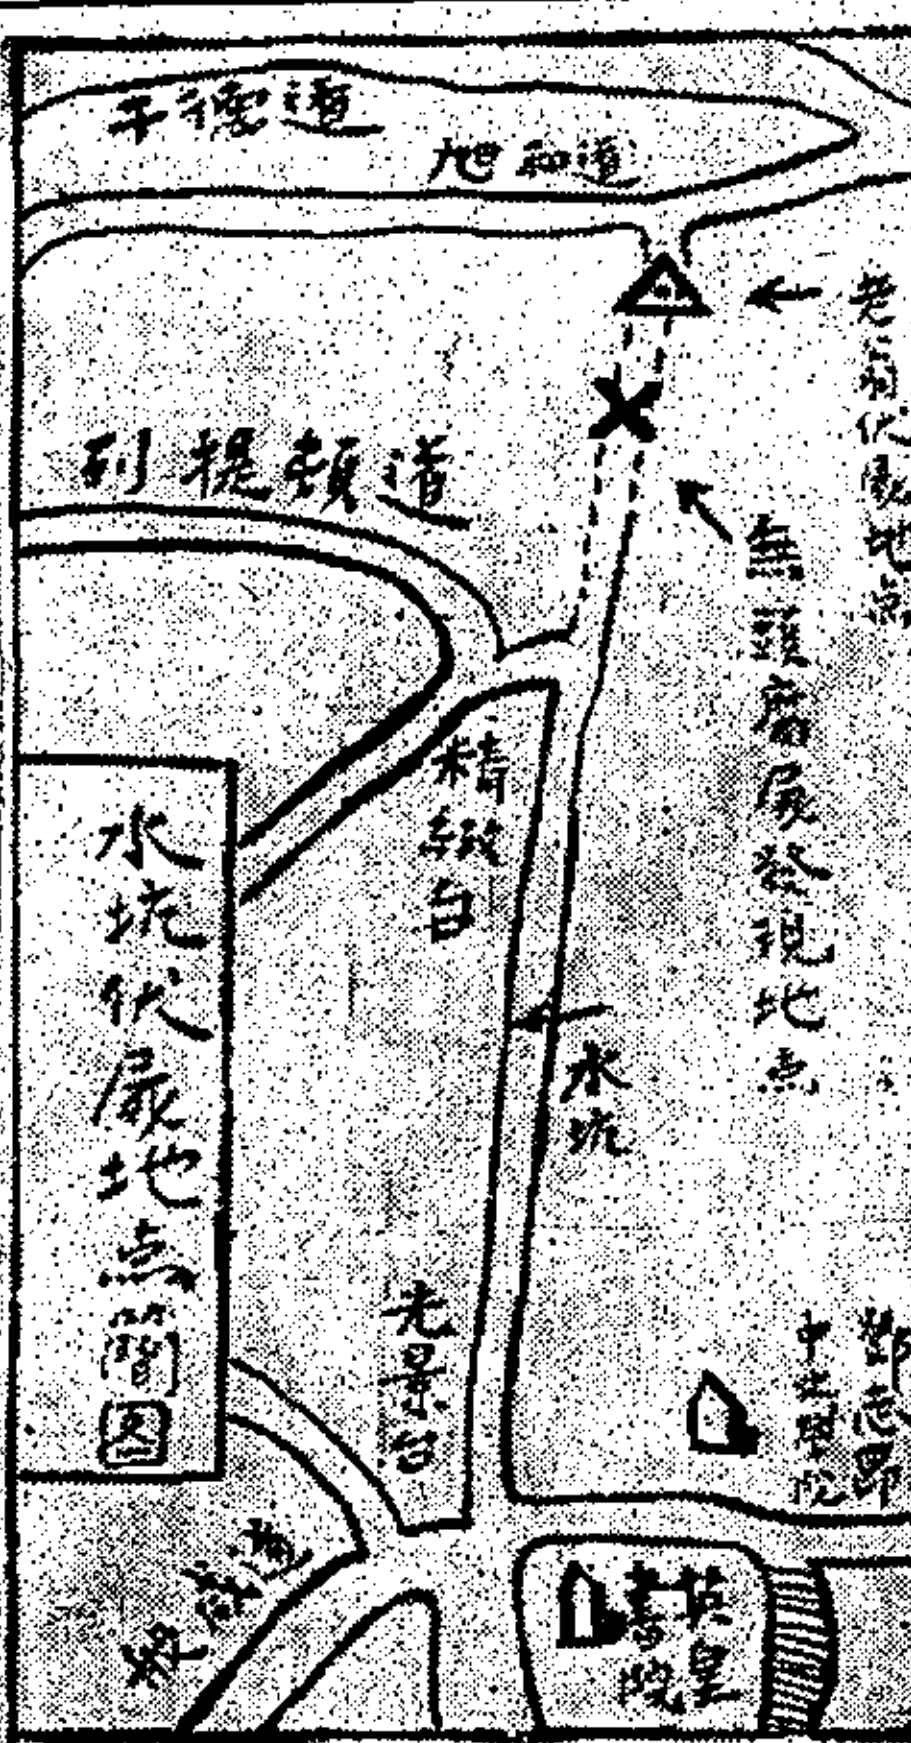 干德道
旭和道
老翁伏屍地点
列提頓道
無腐屍發現地点
精緻台
水坑伏屍地点簡図
水坑
光景台
鄧志昂
中文學院
般咸道
英皇
書院